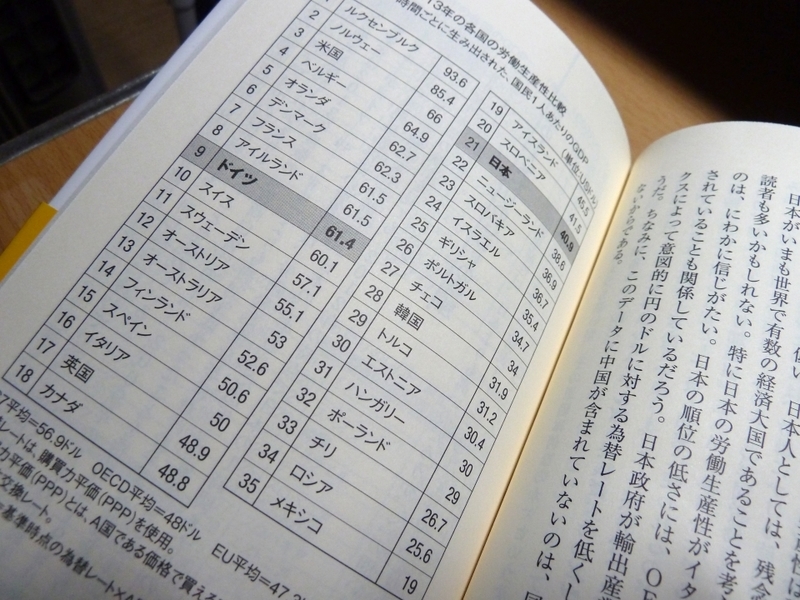 13年の各国の労働生産性比較
時間ごとに生み出された、国民1人あたりのGDP
(単位:USドル)
1 ルクセンブルク 93.6
2 ノルウェー 85.4
3 米国 66
4 ベルギー 64.9
5 オランダ 62.7
6 デンマーク 62.3
7 フランス 61.5
8 アイルランド 61.5
9 ドイツ 61.4
10 スイス 60.1
11 スウェーデン 57.1
12 オーストリア 55.1
13 オーストラリア 53
14 フィンランド 52.6
15 スペイン 50.6
16 イタリア 50
17 英国 48.9
18 カナダ 48.8
19 アイスランド 45.5
20 スロベニア 41.5
21 日本 40.9
22 ニュージーランド 38.6
23 スロバキア 36.9
24 イスラエル 36.7
25 ギリシャ 35.4
26 ポルトガル 34.7
27 チェコ 34
28 韓国 31.9
29 トルコ 31.2
30 エストニア 30.4
31 ハンガリー 30
32 ポーランド 29
33 チリ 26.7
34 ロシア 25.6
35 メキシコ 19
7平均=56.9ドル OECD平均=48ドル EU平均=47.
レートは、購買力平価(PPP)を使用。
力平価(PPP)とは、A国である価格で買える
交換レート。
基準時点の為替レート×A
低い 日本人としては、残念
日本がいまも世界で有数の経済大国であることを考
読者も多いかもしれない。特に日本の労働生産性がイタ
のは、にわかに信じがたい。日本の順位の低さには、OE
されていることも関係しているだろう。日本政府が輸出産業
クスによって意図的に円のドルに対する為替レートを低くし
うだ。ちなみに、このデータに中国が含まれていないのは、
ないからである。